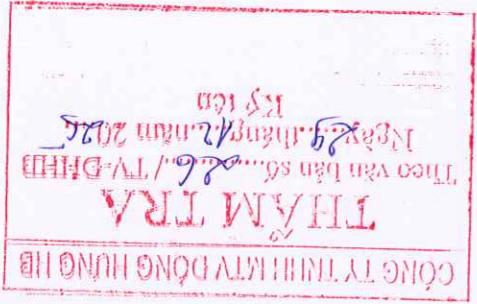 CÔNG TY TNHH MTV ĐÔNG HƯNG HB
THẨM TRA
Theo văn bản số....26..../TV-ĐHHB
Ngày 29 tháng 12 năm 2025
Ký tên